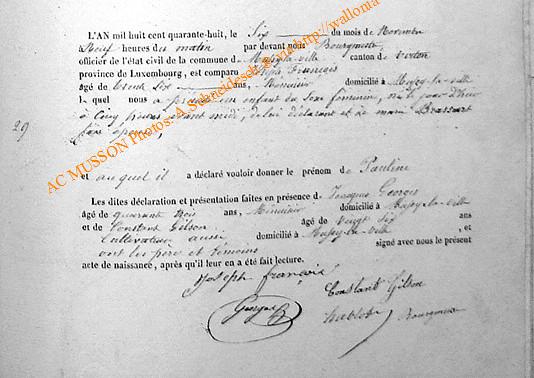 L'AN mil huit cent quarante-huit, le Six du mois de Novembre
Neuf heures du matin par devant nous Bourgmestre
officier de l'état civil de la commune de Musson-la-ville canton de Virton
province de Luxembourg, est comparu François
âgé de trente six ans, Menuisier domicilié à la-ville
lequel nous a présenté un enfant du Sexe féminin, né le jour d'hier
à Cinq heures avant midi, de lui déclarant et de Marie Brassart
son épouse,
29
et auquel il a déclaré vouloir donner le prénom de Pauline
Les dites déclaration et présentation faites en présence de Jacques Georges
âgé de quarante trois ans, Menuisier domicilié à la-ville
et de Constant Gilson âgé de vingt Six ans
Cultivateur aussi domicilié à la-ville , et
ont les père et témoins signé avec nous le présent
acte de naissance, après qu'il leur en a été fait lecture.
Joseph François
Georges
Constant Gilson
Bourgmestre
AC MUSSON Photos: A. Schneidesch @ via http://wallonia